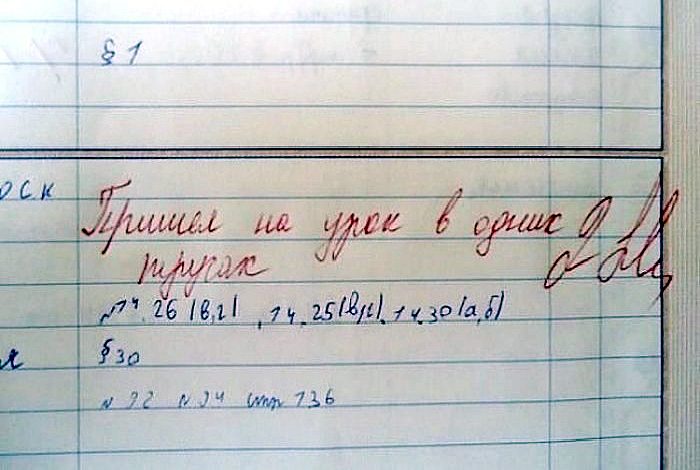 § 1
оск
Пришел на урок в одних
трусах
№ 14.26 (в,г), 14.25(в,г), 14.30(а,б)
я
§ 30
№ 92 № 94 стр 136